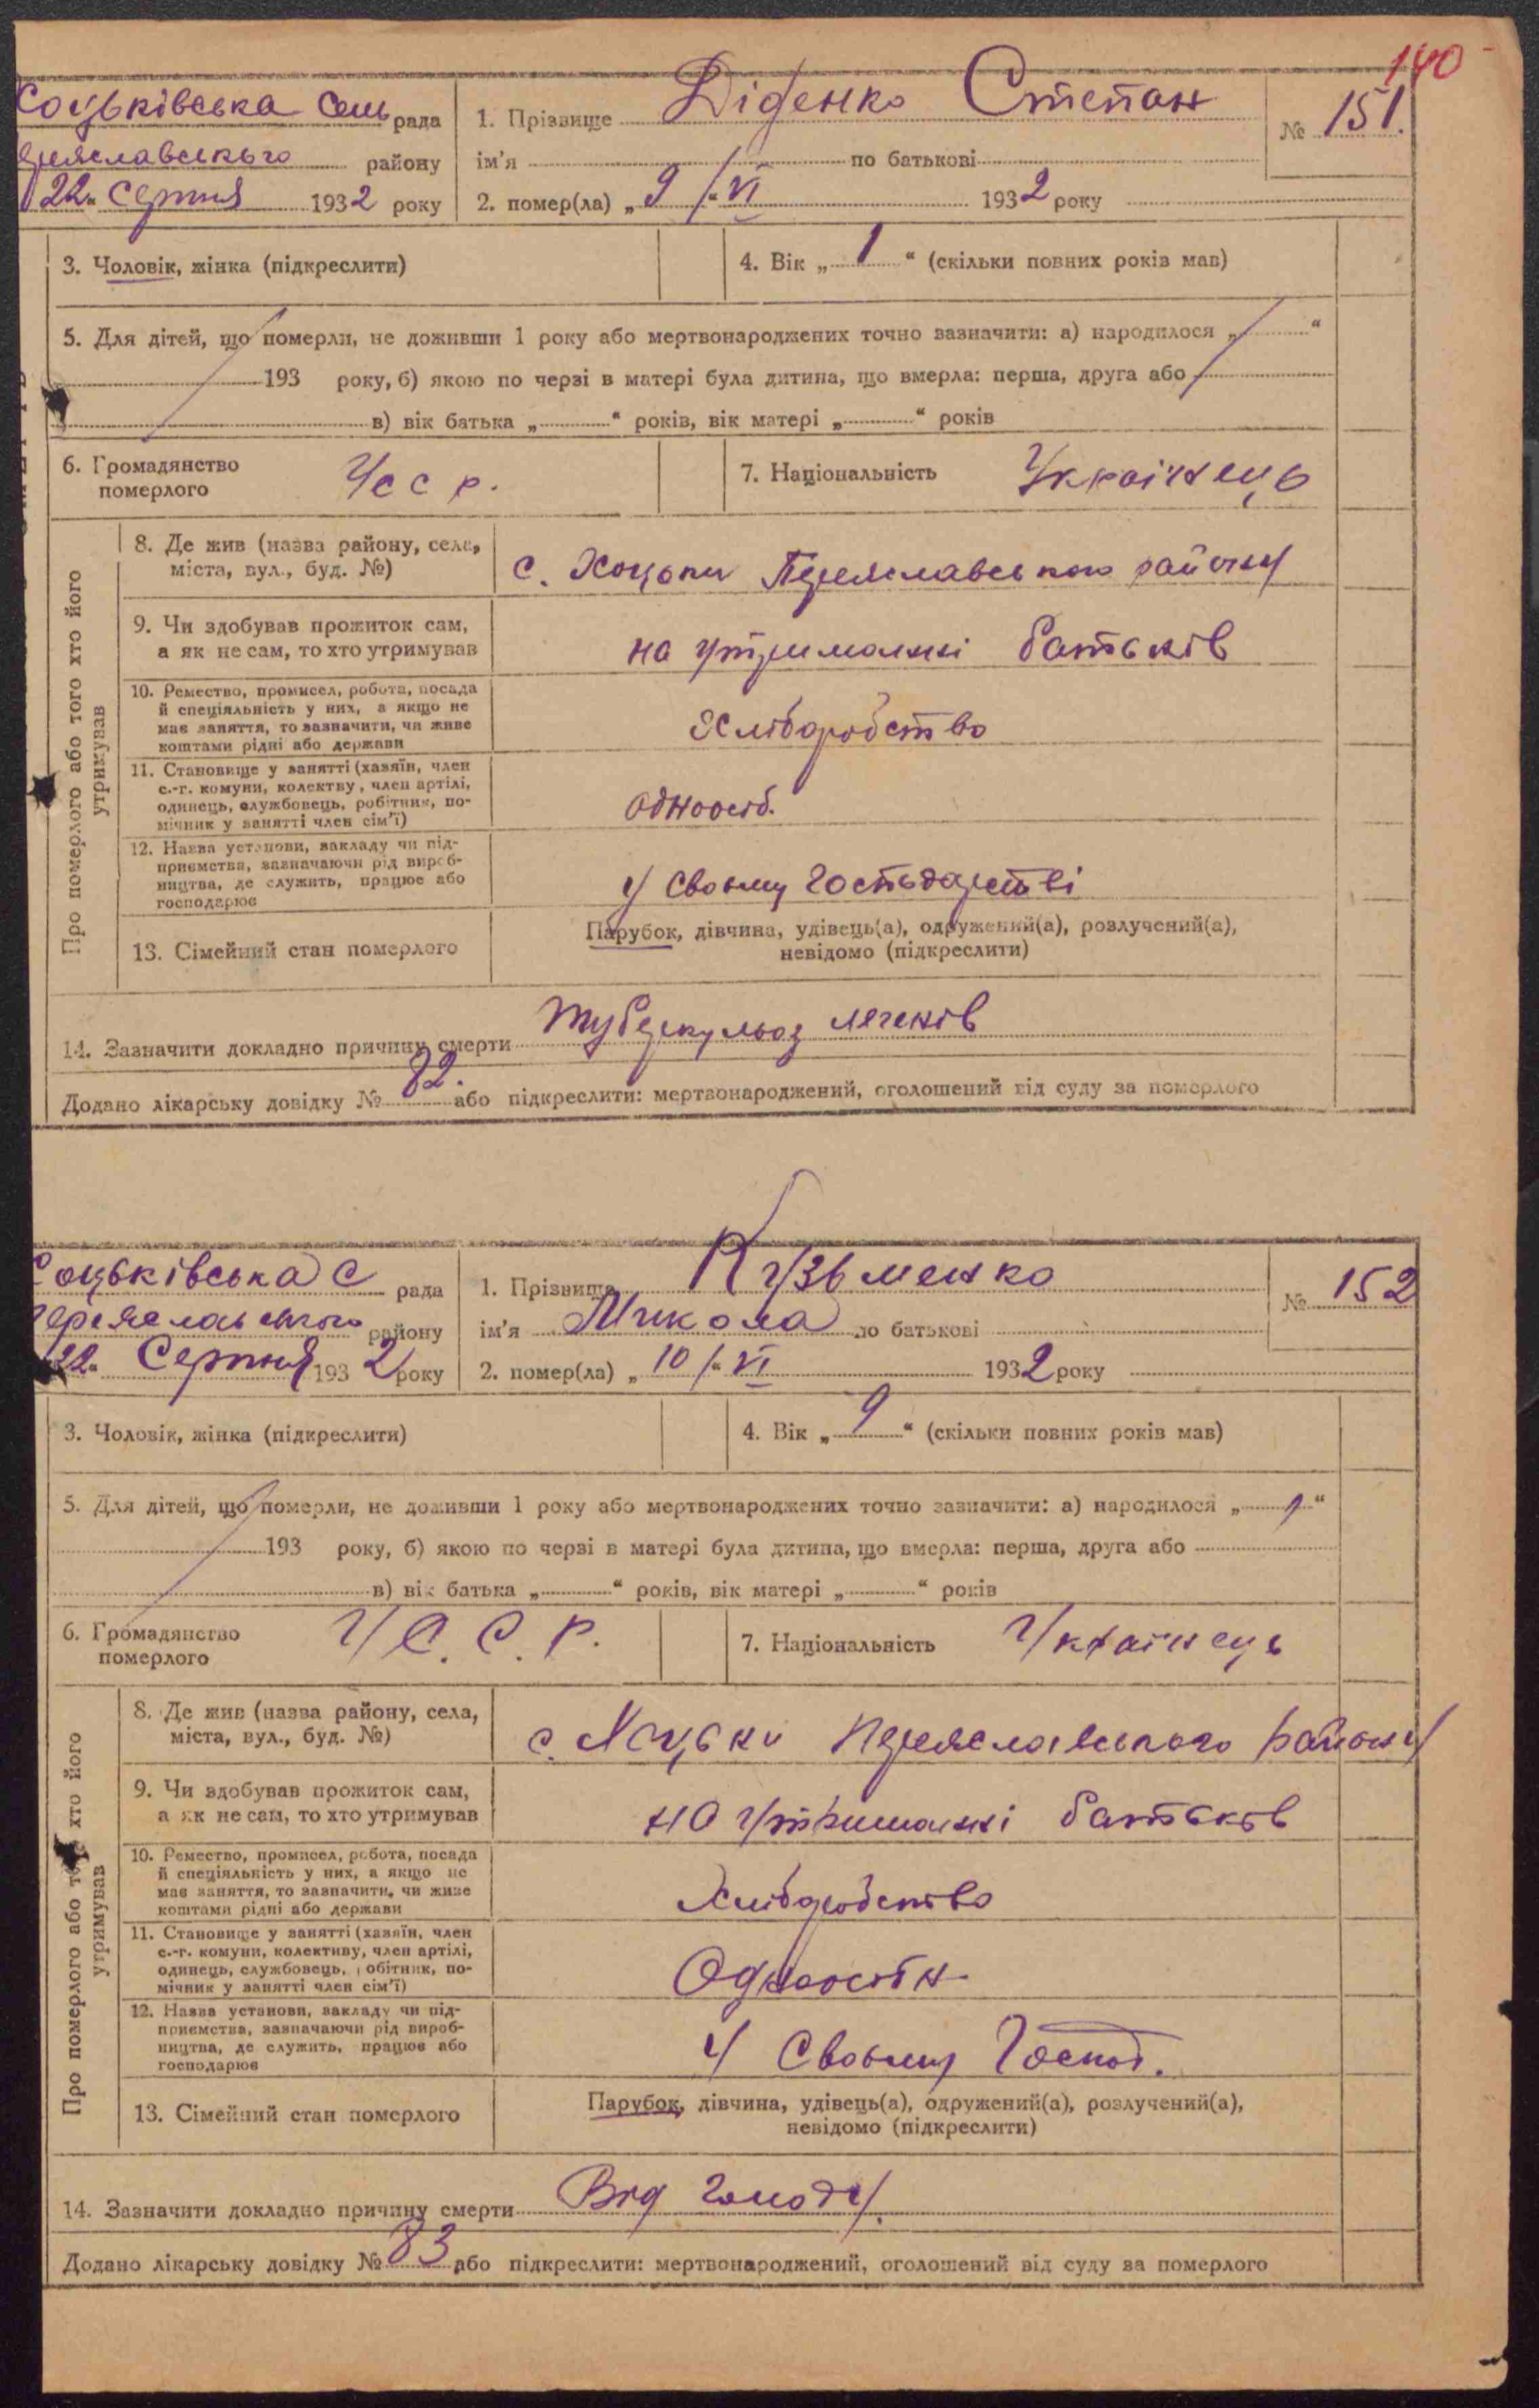 140
Хоцьківська Сель рада
1. Прізвище Діденко Степан
№ 151.
району
ім'я по батькові
22 Серпня 1932 року
2. помер(ла) „9/“ VI 1932 року
3. Чоловік, жінка (підкреслити)
4. Вік „1“ (скільки повних років мав)
5. Для дітей, що померли, не доживши 1 року або мертвонароджених точно зазначити: а) народилося „ “
193 року, б) якою по черзі в матері була дитина, що вмерла: перша, друга або
в) вік батька „ “ років, вік матері „ “ років
6. Громадянство
померлого
Усср.
7. Національність Українець
Про померлого або того хто його
утримував
8. Де жив (назва району, села,
міста, вул., буд. №)
с. Хоцьки Переяславського району
9. Чи здобував прожиток сам,
а як не сам, то хто утримував
на утриманні батьків
10. Ремество, промисел, робота, посада
й спеціяльність у них, а якщо не
має заняття, то зазначити, чи живе
коштами рідні або держави
Хліборобство
11. Становище у занятті (хазяїн, член
с.-г. комуни, колектву, член артілі,
одинець, службовець, робітник, по-
мічник у занятті член сім'ї)
одноосіб.
12. Назва установи, закладу чи під-
приємства, зазначаючи рід вироб-
ництва, де служить, працює або
господарює
у своєму господарстві
13. Сімейний стан померлого
Парубок, дівчина, удівець(а), одружений(а), розлучений(а),
невідомо (підкреслити)
14. Зазначити докладно причину смерти туберкульоз легенів
Додано лікарську довідку № 82. або підкреслити: мертвонароджений, оголошений від суду за померлого
Хоцьківська С рада
1. Прізвище Кузьменко
№ 152
Переяславського району
ім'я Микола по батькові
22 Серпня 1932 року
2. помер(ла) „10/“ VI 1932 року
3. Чоловік, жінка (підкреслити)
4. Вік „9“ (скільки повних років мав)
5. Для дітей, що померли, не доживши 1 року або мертвонароджених точно зазначити: а) народилося „ “
193 року, б) якою по черзі в матері була дитина, що вмерла: перша, друга або
в) вік батька „ “ років, вік матері „ “ років
6. Громадянство
померлого
У.С.С.Р.
7. Національність Українець
Про померлого або того хто його
утримував
8. Де жив (назва району, села,
міста, вул., буд. №)
с. Хоцьки Переяславського району
9. Чи здобував прожиток сам,
а як не сам, то хто утримував
на утриманні батьків
10. Ремество, промисел, робота, посада
й спеціяльність у них, а якщо не
має заняття, то зазначити, чи живе
коштами рідні або держави
Хліборобство
11. Становище у занятті (хазяїн, член
с.-г. комуни, колективу, член артілі,
одинець, службовець, робітник, по-
мічник у занятті член сім'ї)
12. Назва установи, закладу чи під-
приємства, зазначаючи рід вироб-
ництва, де служить, працює або
господарює
У Своєму Господ.
13. Сімейний стан померлого
Парубок, дівчина, удівець(а), одружений(а), розлучений(а),
невідомо (підкреслити)
14. Зазначити докладно причину смерти Від голоду.
Додано лікарську довідку № 83 або підкреслити: мертвонароджений, оголошений від суду за померлого